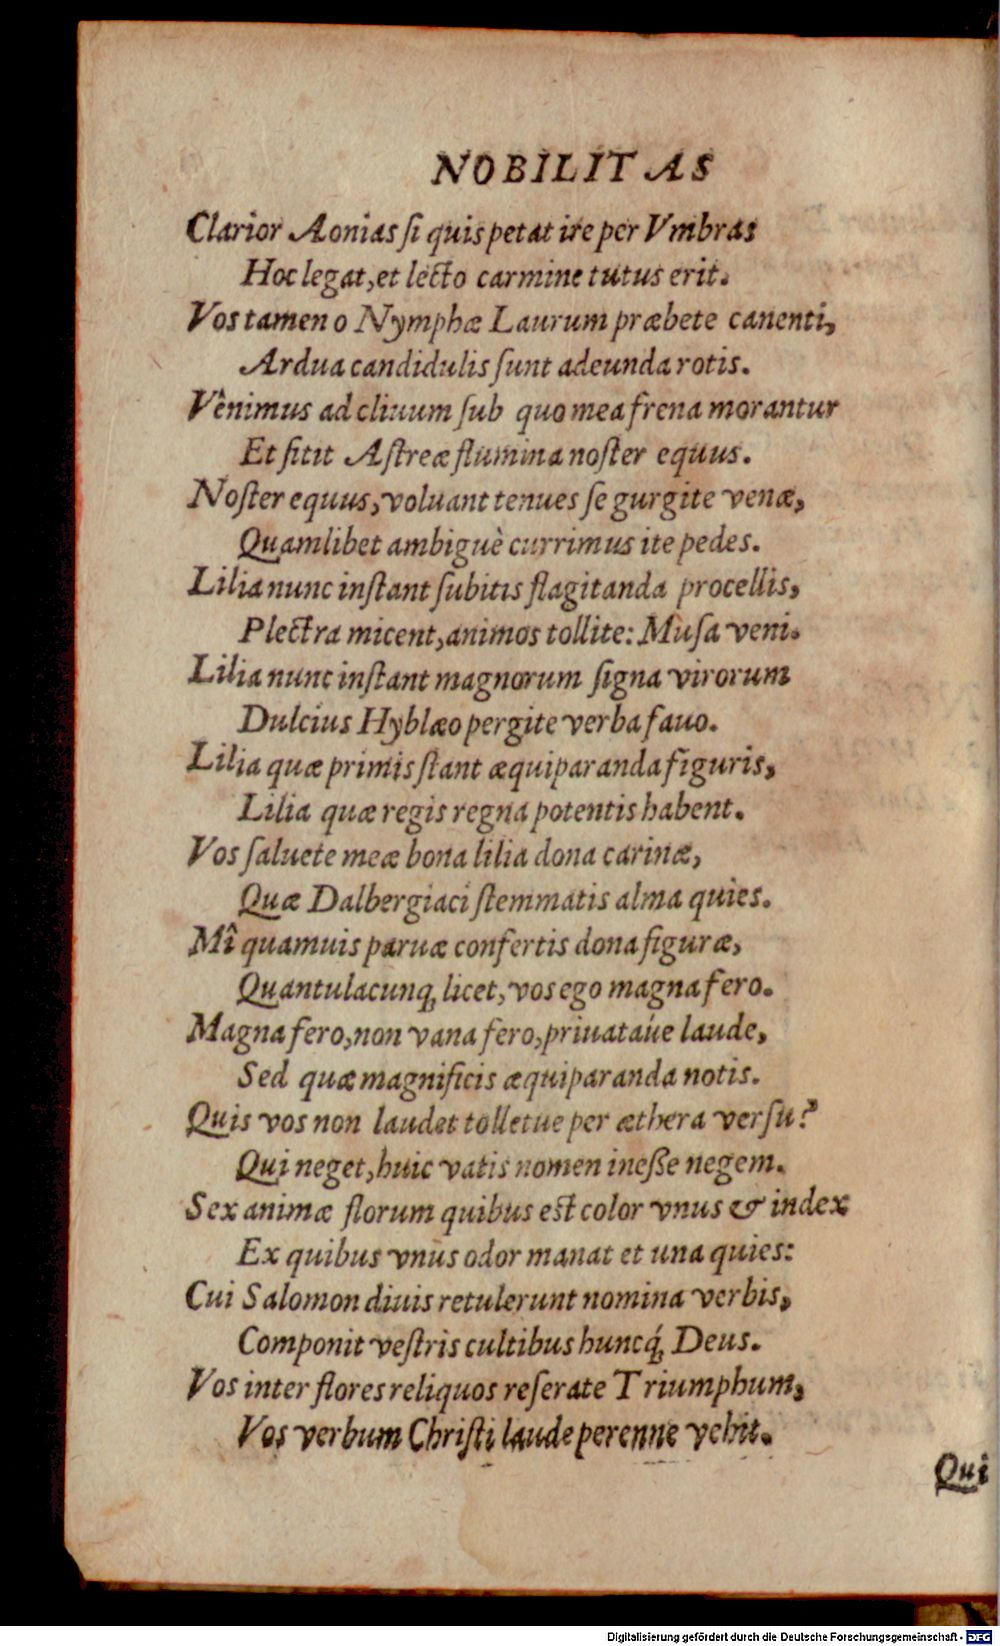 NOBILITAS
Clarior Aonias ſi quis petat ire per Vmbras
Hoc legat, et lecto carmine tutus erit.
Vos tamen o Nymphæ Laurum præbete canenti,
Ardua candidulis ſunt adeunda rotis.
Vênimus ad cliuum ſub quo mea frena morantur
Et ſitit Aſtreæ flumina noſter equus.
Noſter equus, voluant tenues ſe gurgite venæ,
Quamlibet ambiguè currimus ite pedes.
Lilia nunc inſtant ſubitis flagitanda procellis,
Plectra micent, animos tollite: Muſa veni.
Lilia nunc inſtant magnorum ſigna virorum
Dulcius Hyblæo pergite verba fauo.
Lilia quæ primis ſtant æquiparanda figuris,
Lilia quæ regis regna potentis habent.
Vos ſaluete meæ bona lilia dona carinæ,
Quæ Dalbergiaci ſtemmatis alma quies.
Mî quamuis paruæ confertis dona figuræ,
Quantulacunq; licet, vos ego magna fero.
Magna fero, non vana fero, priuataúe laude,
Sed quæ magnificis æquiparanda notis.
Quis vos non laudet tolletue per æthera verſu?
Qui neget, huic vatis nomen ineſſe negem.
Sex animæ florum quibus est color vnus & index
Ex quibus vnus odor manat et una quies:
Cui Salomon diuis retulerunt nomina verbis,
Componit veſtris cultibus huncq́; Deus.
Vos inter flores reliquos reſerate Triumphum,
Vos verbum Chriſti laude perenne vehit.
Qui
Digitalisierung gefördert durch die Deutsche Forschungsgemeinschaft - DFG